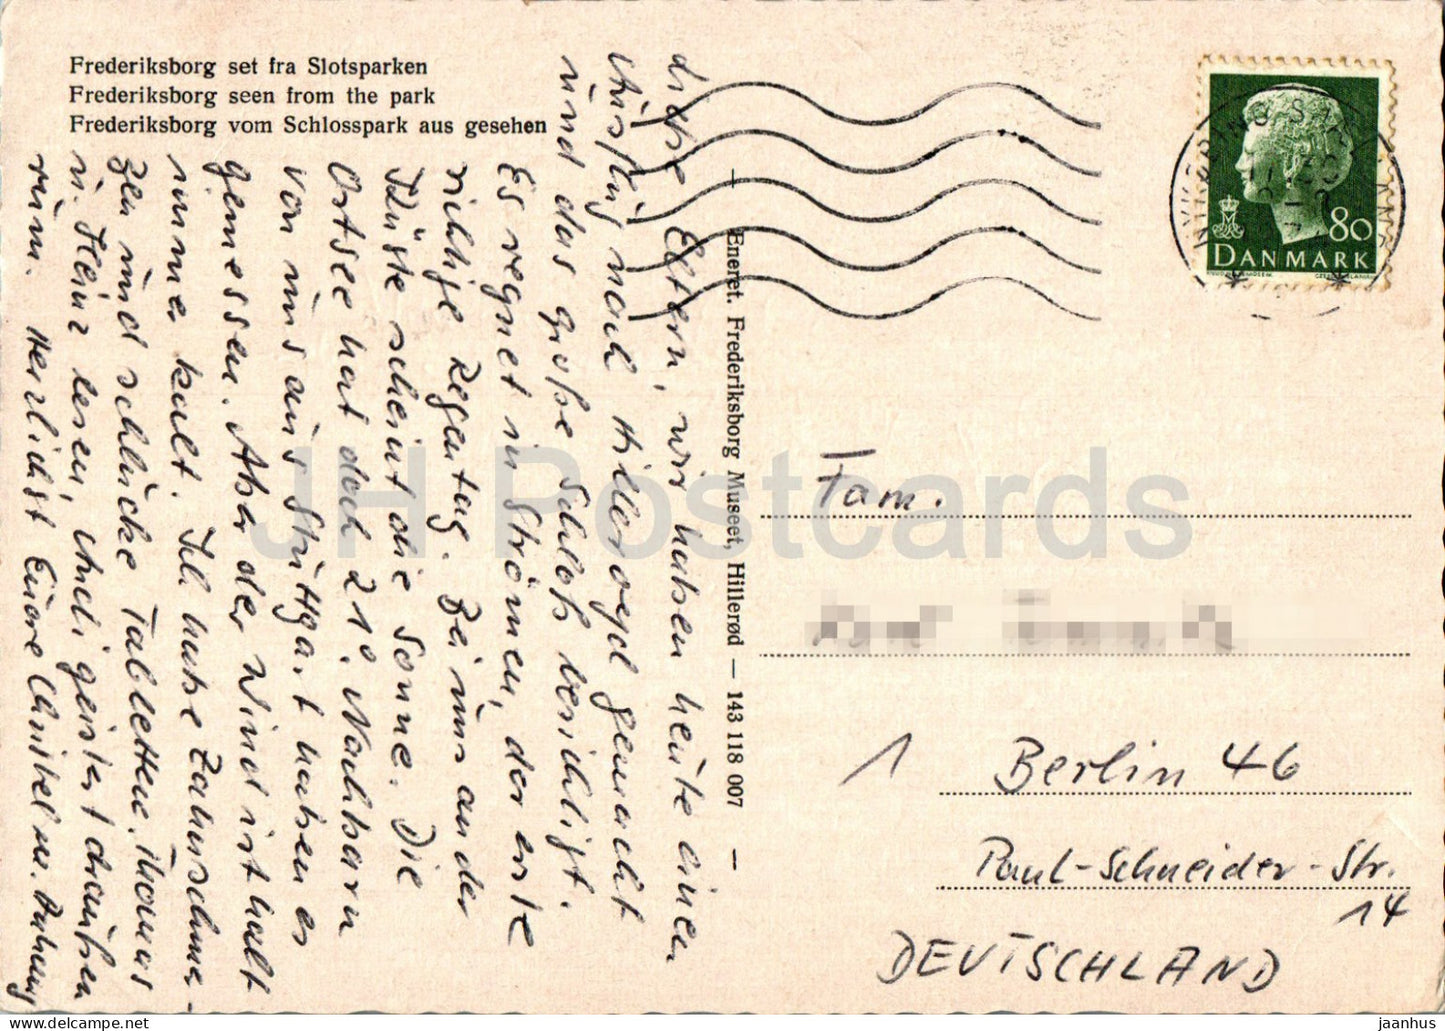 Frederiksborg set fra Slotsparken
Frederiksborg seen from the park
Frederiksborg vom Schlosspark aus gesehen
Liebe Eltern, wir haben heute einen
Ausflug nach Hilleroed gemacht
und das große Schloß besichtigt.
Es regnet in Strömen, der erste
richtige Regentag. Bei uns an der
Küste scheint die Sonne. Die
Ostsee hat doch 21°. Nachbarn
von uns aus Stuttgart haben es
gemessen. Aber der Wind ist halt
immer kalt. Ich habe Zahnschmer-
zen und schlucke Tabletten. Thomas
u. Heinz lesen, Andi geistert draußen
rum. Herzlichst Euere Christel m. Anhang
Eneret. Frederiksborg Museet, Hillerød — 143 118 007 —
80
DANMARK
Fam.
1 Berlin 46
Paul-Schneider-Str.
14
DEUTSCHLAND
JH Postcards
jaanhus @ www.delcampe.net